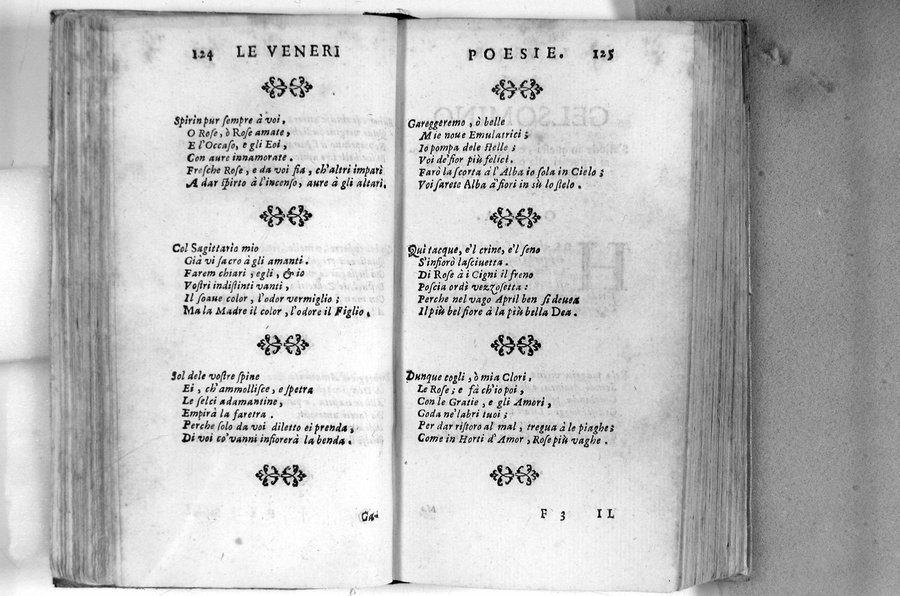 124 LE VENERI
Spirin pur sempre à voi,
O Rose, ò Rose amate,
E l'Occaso, e gli Eoi,
Con aure innamorate.
Fresche Rose, e da voi sia, ch'altri impari
A dar spirto à l'incenso, aure à gli altari.
Col Sagittario mio
Già vi sacro à gli amanti.
Farem chiari, egli, & io
Vostri indistinti vanti,
Il soaue color, l'odor vermiglio;
Ma la Madre il color, l'odore il Figlio.
Sol dele vostre spine
Ei, ch'ammollisce, e spetra
Le selci adamantine,
Empirà la faretra.
Perche solo da voi diletto ei prenda,
Di voi co' vanni infiorerà la benda.
Ga-
POESIE. 125
Gareggeremo, ò belle
Mie noue Emulatrici;
Io pompa dele stelle;
Voi de' fior più felici.
Farò la scorta a l'Alba io sola in Cielo;
Voi sarete Alba a' fiori in sù lo stelo.
Qui tacque, e'l crine, e'l seno
S'infiorò lasciuetta.
Di Rose à i Cigni il freno
Poscia ordì vezzosetta:
Perche nel vago April ben si deuea
Il più bel fiore à la più bella Dea.
Dunque cogli, ò mia Clori,
Le Rose; e fà ch'io poi,
Con le Gratie, e gli Amori,
Goda ne' labri tuoi;
Per dar ristoro al mal, tregua à le piaghe;
Come in Horti d'Amor, Rose più vaghe.
F 3 IL